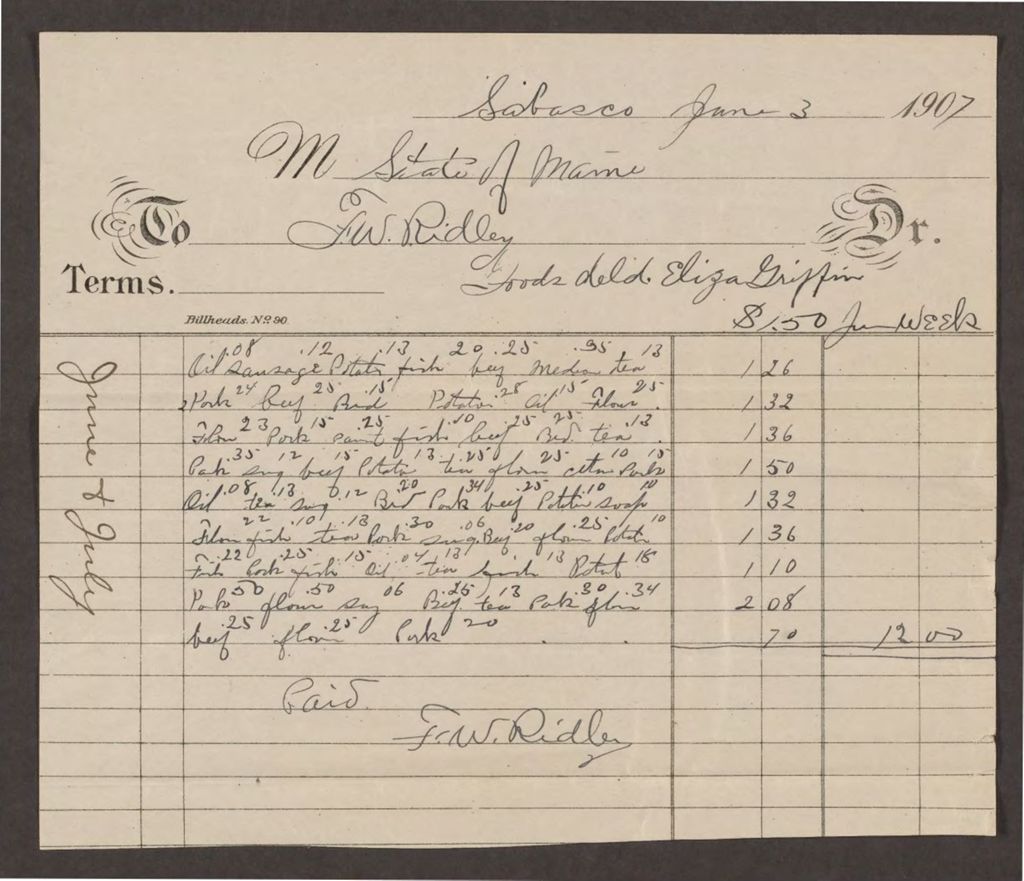 Sabasco June 3 1907
M State of Maine
To F.W. Ridley Dr.
Terms. Goods deld Eliza Griffin
Billheads. No 90. $1.50 WEEk
June & July
.08 .12 .13 20 .25 .35 13
Oil Sausage Potato fish beef tea 1 26
24 25 .15 .28 .15 25
Pork beef Potatoe Oil Flour 1 32
23 15 .25 .10 .25 25 .13
Pork fish beef tea 1 36
.35 12 15 13 .25 25 10 15
beef Potato tea flour Pork 1 50
.08 .13 0.12 .20 34 .25 .10 10
Oil tea Pork beef Potatoe soap 1 32
22 .10 .13 .30 .06 20 .25 10
fish tea Pork flour Potato 1 36
.22 .25 .15 .04 .13 13 18
Pork fish Oil tea Potat 1 10
50 .50 06 .25 13 .30 .34
flour tea 2 08
.25 .25 20
beef flour Pork 70 12 00
Paid
F.W. Ridley